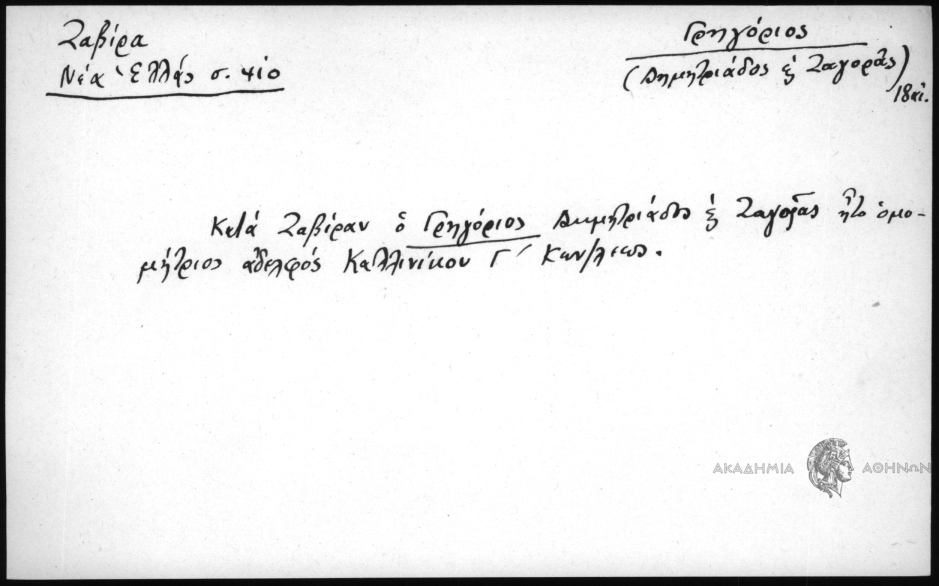 Ζαβίρα
Νέα Ἑλλάς σ. 410
Γρηγόριος
(Δημητριάδος & Ζαγορᾶς)
18 αἰ.
Κατά Ζαβίραν ὁ Γρηγόριος Δημητριάδος & Ζαγορᾶς ἦτο ὁμο-
μήτριος ἀδελφός Καλλινίκου Γ΄ Κων/λεως.
ΑΚΑΔΗΜΙΑ ΑΘΗΝΩΝ